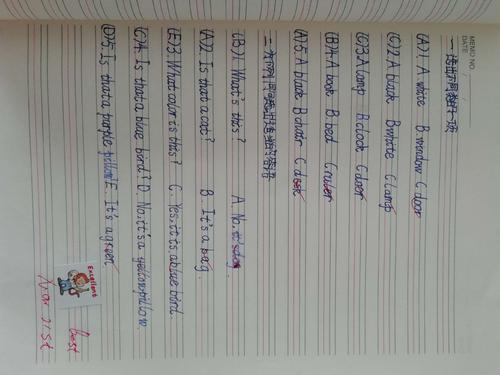 MEMO NO.
DATE
一、选出不同类的一项
(A)1. A. white B. window C. door
(C)2. A black B white C lamp
(C)3. A lamp B. clock C door
(B)4. A book B. bed C ruler
(A)5. A black B chair C desk
(B)1. What's this? A. No, it's
(A)2. Is that a cat? B. It's a bag.
(E)3. What color is this? C. Yes, it is a blue bird.
(C)4. Is that a blue bird? D. No, it's a yellow pillow.
(D)5. Is that a purple pillow? E. It's green
Excellent
Best